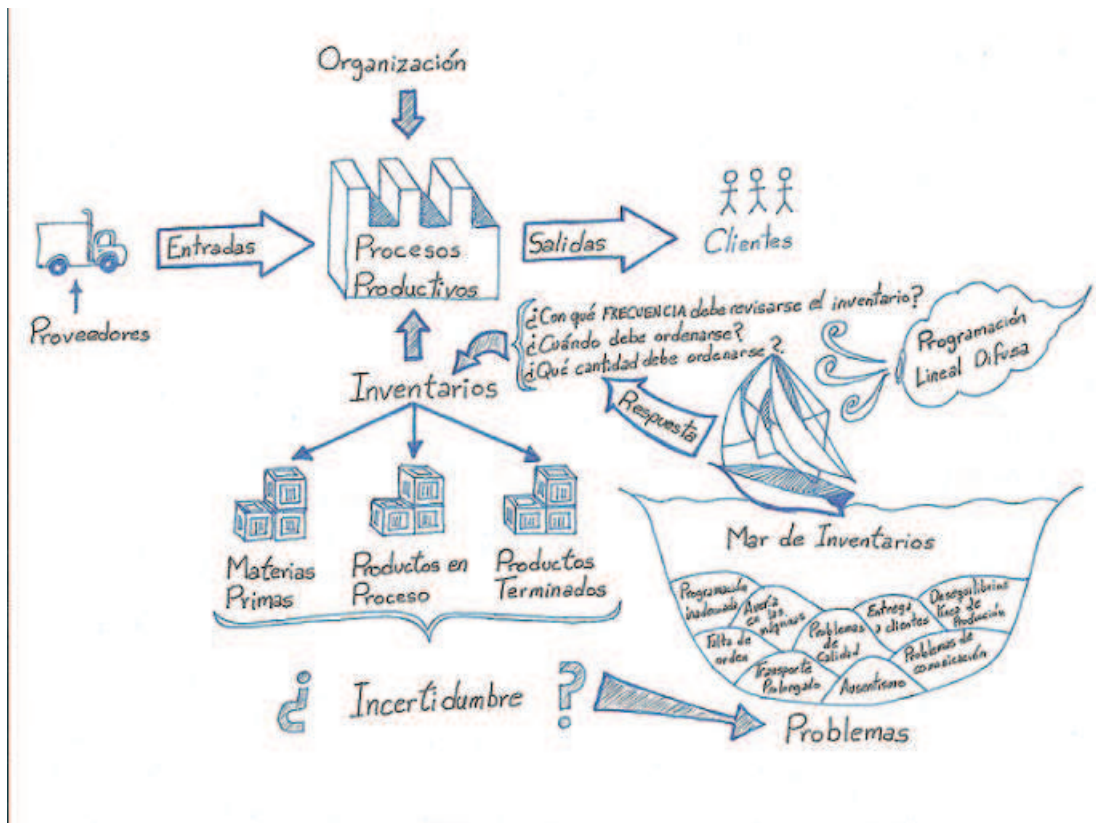 Organización
Entradas
Procesos
Productivos
Salidas
Clientes
Proveedores
¿Con qué FRECUENCIA debe revisarse el inventario?
¿Cuándo debe ordenarse?
¿Qué cantidad debe ordenarse?
Programación
Lineal Difusa
Respuesta
Inventarios
Materias
Primas
Productos en
Proceso
Productos
Terminados
Mar de Inventarios
Programación
inadecuada
Avería
en las
máquinas
Problemas
de
Calidad
Entrega
a clientes
Desequilibrios
línea de
Producción
Falta de
orden
Transporte
Prolongado
Ausentismo
Problemas de
comunicación
¿ Incertidumbre ?
Problemas